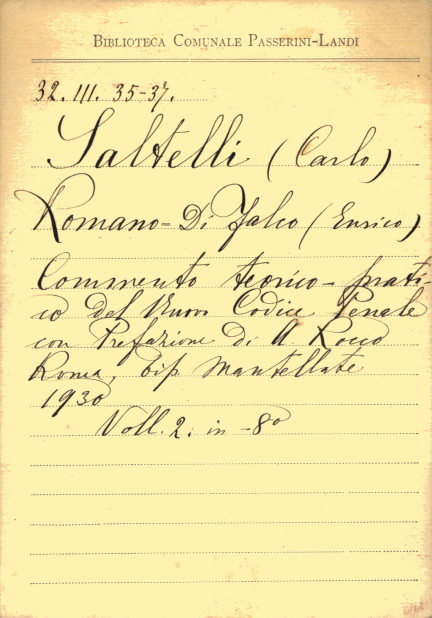 BIBLIOTECA COMUNALE PASSERINI-LANDI
32. III. 35-37.
Saltelli (Carlo)
Romano-Di Falco (Enrico)
Commento teorico-prati-
co del Nuovo Codice Penale
con Prefazione di A Rocco
Roma, tip Mantellate
1930
Voll. 2. in -8°